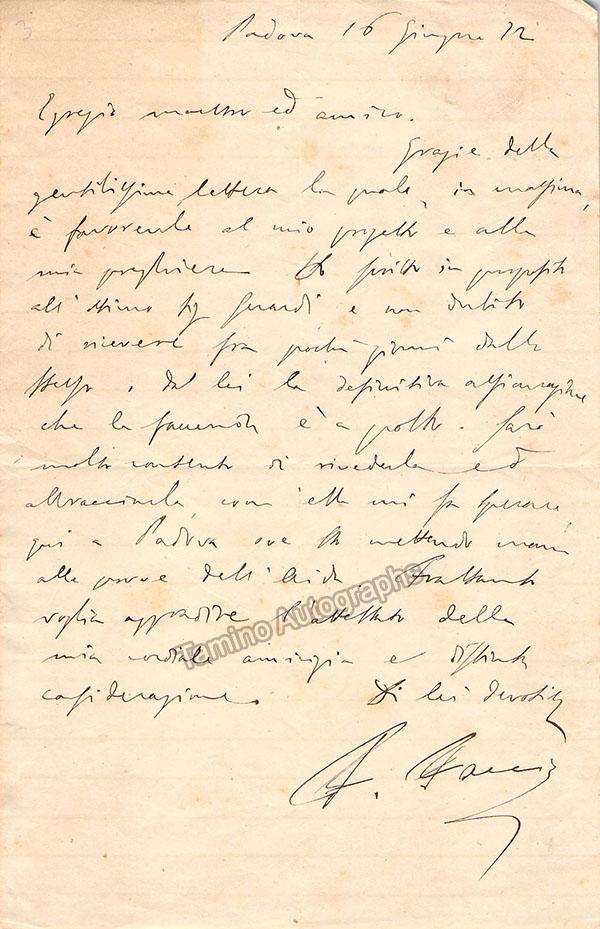 3
Padova 16 Giugno 72
Egregio maestro ed amico.
Grazie della
gentilissima lettera la quale, in massima,
è favorevole al mio progetto e alla
mia preghiera. Ho scritto in proposito
all'ottimo Sig Gerardi e non dubito
di ricevere fra pochi giorni dallo
stesso, o da lei la definitiva assicurazione
che la faccenda è a posto. Sarò
molto contento di rivederla ed
abbracciarla, com'ella mi fa sperare,
qui a Padova ove sto mettendo mano
alle prove dell'Aida. Frattanto
voglia aggradire l'attestato della
mia cordiale amicizia e distinta
considerazione.
Di lei devotis
F. Faccio
Tamino Autographs